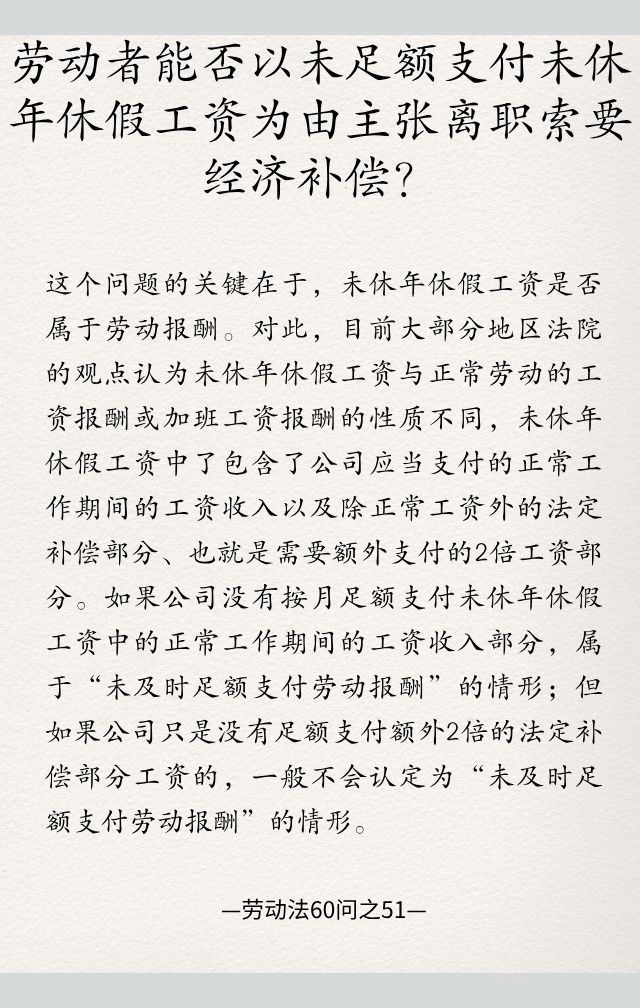 劳动者能否以未足额支付未休
年休假工资为由主张离职索要
经济补偿?
这个问题的关键在于，未休年休假工资是否
属于劳动报酬。对此，目前大部分地区法院
的观点认为未休年休假工资与正常劳动的工
资报酬或加班工资报酬的性质不同，未休年
休假工资中了包含了公司应当支付的正常工
作期间的工资收入以及除正常工资外的法定
补偿部分、也就是需要额外支付的2倍工资部
分。如果公司没有按月足额支付未休年休假
工资中的正常工作期间的工资收入部分，属
于“未及时足额支付劳动报酬”的情形；但
如果公司只是没有足额支付额外2倍的法定补
偿部分工资的，一般不会认定为“未及时足
额支付劳动报酬”的情形。
—劳动法60问之51—